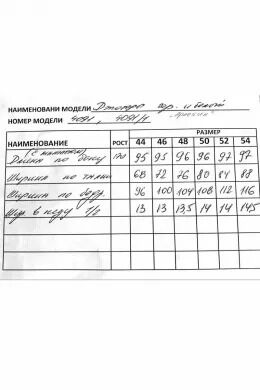 НАИМЕНОВАНИ МОДЕЛИ Джоггеры
НОМЕР МОДЕЛИ 4091, 4091/1
НАИМЕНОВАНИЕ РОСТ РАЗМЕР
44 46 48 50 52 54
Длина по боку 170 95 95 96 96 97 97
Ширина по талии 68 72 76 80 84 88
Ширина по бедр. 96 100 104 108 112 116
Шир в низу 1/2 13 13 13,5 14 14 14,5